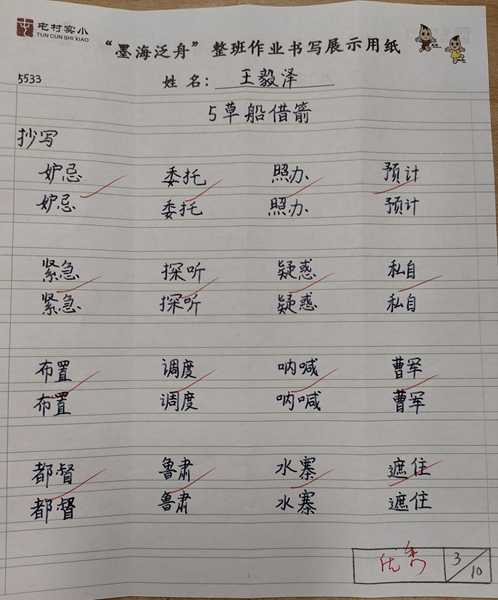 屯村实小
TUN CUN SHI XIAO
“墨海泛舟”整班作业书写展示用纸
5533
姓名：王毅泽
5草船借箭
抄写
妒忌 委托 照办 预计
妒忌 委托 照办 预计
紧急 探听 疑惑 私自
紧急 探听 疑惑 私自
布置 调度 呐喊 曹军
布置 调度 呐喊 曹军
都督 鲁肃 水寨 遮住
都督 鲁肃 水寨 遮住
优秀 3/10